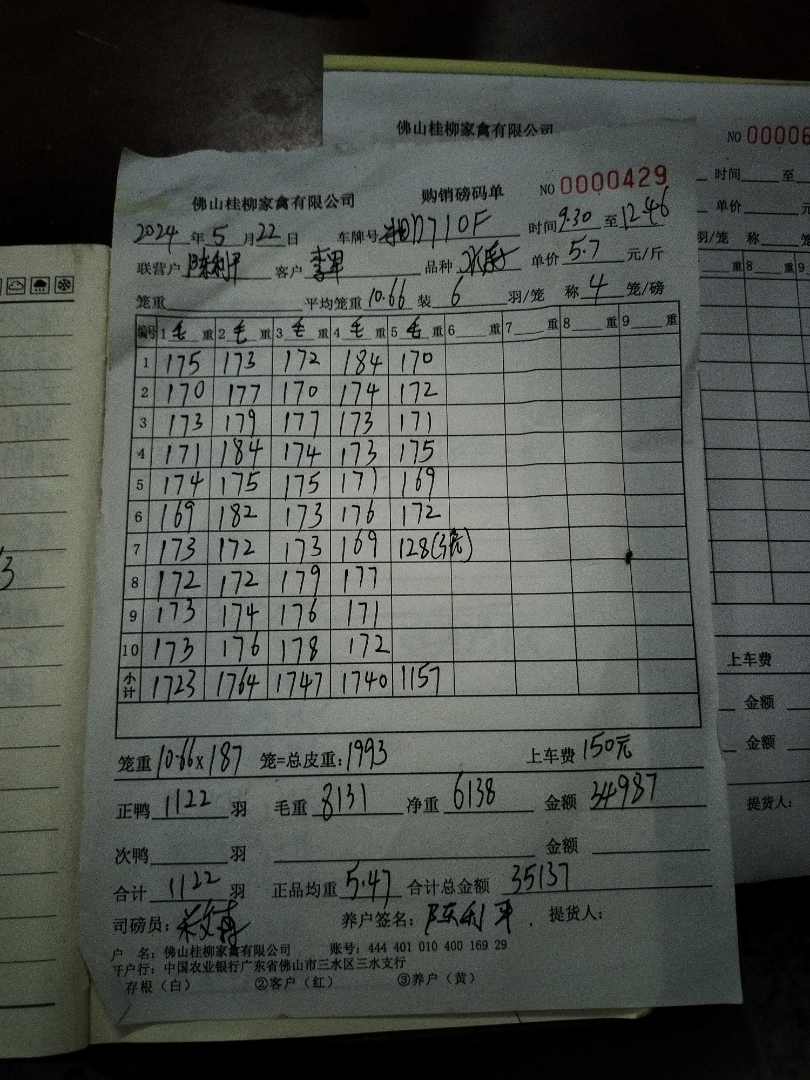 佛山桂柳家禽有限公司
NO 00006
时间 至
单价
羽/笼 称 笼
重 8 重 9
上车费
金额
金额
提货人:
佛山桂柳家禽有限公司 购销磅码单 NO 0000429
2024 年 5 月 22 日 车牌号 湘D7710F 时间 9.30 至 12.46
联营户 陈利平 客户 李军 品种 单价 5.7 元/斤
笼重 平均笼重 10.66 装 6 羽/笼 称 4 笼/磅
编号 1 毛 重 2 毛 重 3 毛 重 4 毛 重 5 毛 重 6 重 7 重 8 重 9 重
1 175 173 172 184 170
2 170 177 170 174 172
3 173 179 177 173 171
4 171 184 174 173 175
5 174 175 175 171 169
6 169 182 173 176 172
7 173 172 173 169 128(3笼)
8 172 172 179 177
9 173 174 176 171
10 173 176 178 172
小计 1723 1764 1747 1740 1157
笼重 10.66x187 笼=总皮重: 1993 上车费 150元
正鸭 1122 羽 毛重 8131 净重 6138 金额 34987
次鸭 羽 金额
合计 1122 羽 正品均重 5.47 合计总金额 35137
司磅员: 养户签名: 陈利平. 提货人:
户 名: 佛山桂柳家禽有限公司 账号: 444 401 010 400 169 29
开户行: 中国农业银行广东省佛山市三水区三水支行
存根(白) ②客户(红) ③养户(黄)